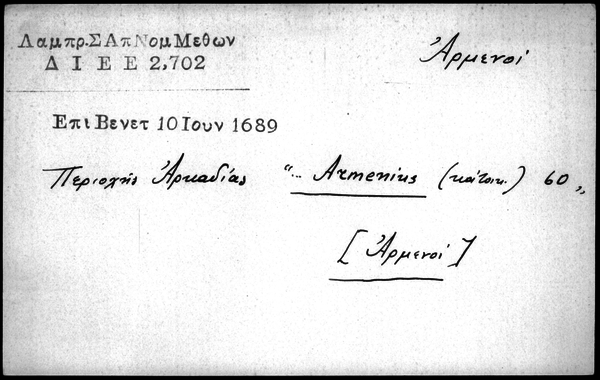 Λαμπρ.ΣΑπΝομΜεθων
Ἀρμενοί
Δ Ι Ε Ε 2,702
Επι Βενετ 10 Ιουν 1689
Περιοχῆς Ἀρκαδίας "... Armenius (κάτοικ.) 60"
[Ἀρμενοί]